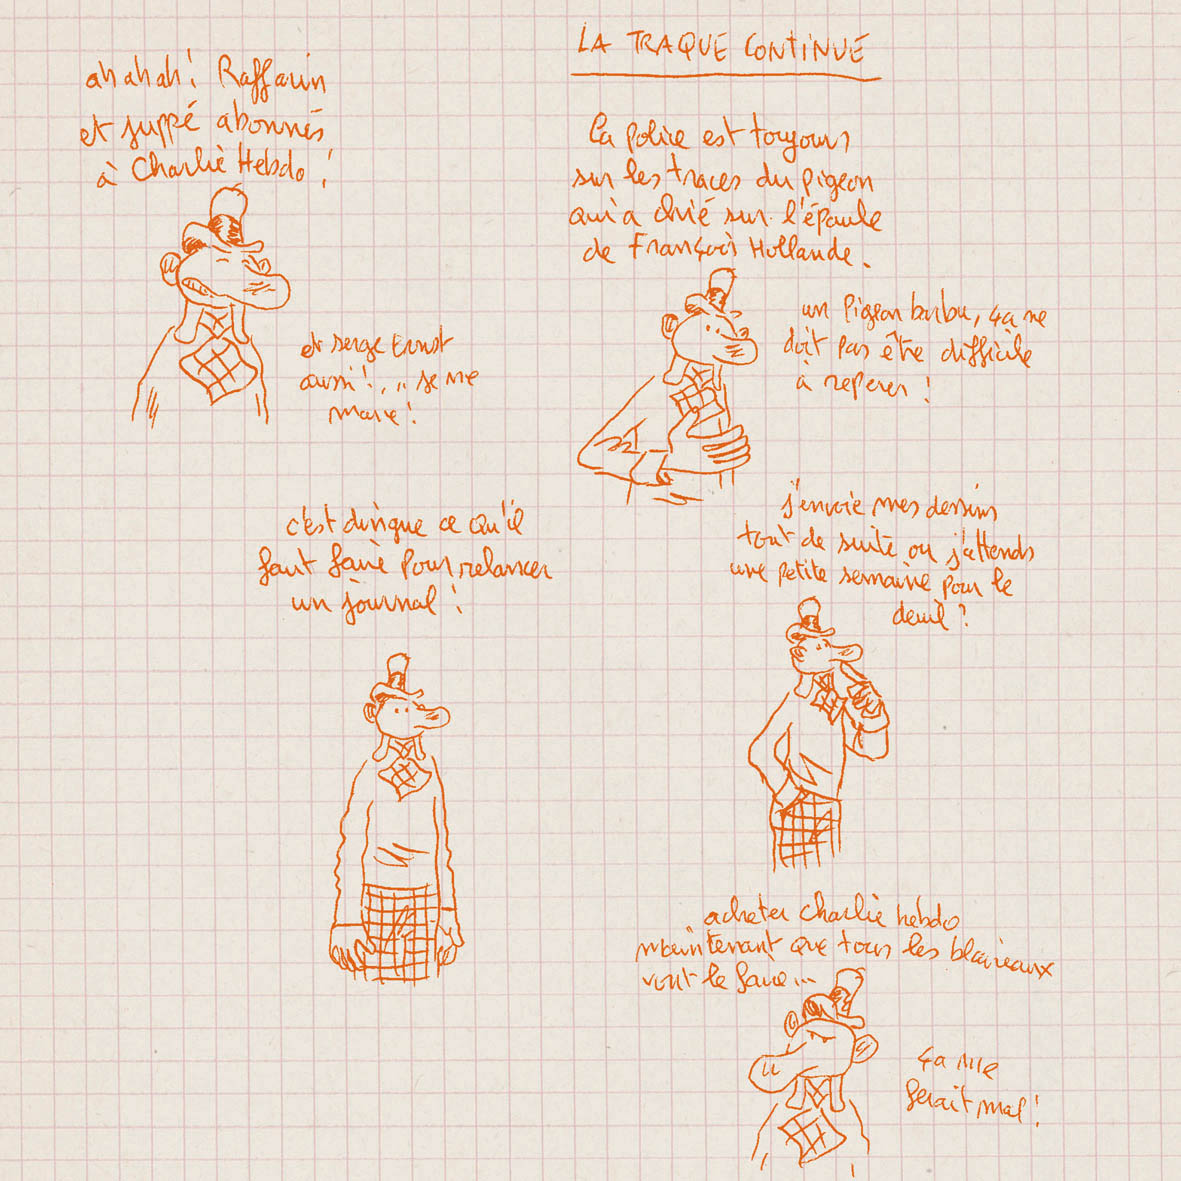 ah ah ah! Raffarin
et juppé abonnés
à Charlie Hebdo!
et serge Ernst
aussi!... je me
marre!
LA TRAQUE CONTINUE
la police est toujours
sur les traces du pigeon
qui a chié sur l'épaule
de François Hollande.
un pigeon barbu, ça ne
doit pas être difficile
à reperer!
c'est dingue ce qu'il
faut faire pour relancer
un journal!
j'envoie mes dessins
tout de suite ou j'attends
une petite semaine pour le
deuil?
acheter charlie hebdo
maintenant que tous les blaireaux
vont le faire...
ça me
ferait mal!